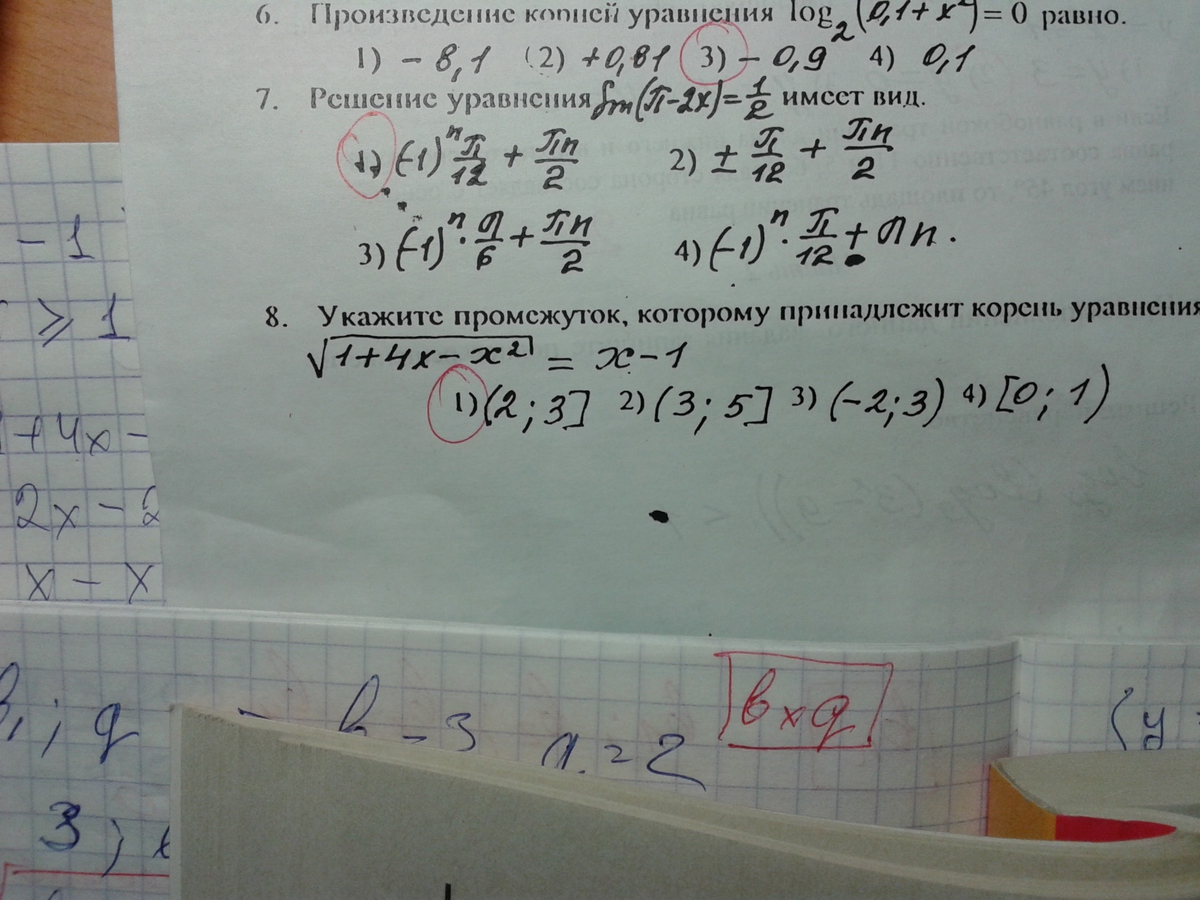 6. Произведение корней уравнения log₂(0,1+x²)=0 равно.
1) - 8,1 (2) +0,81 3) - 0,9 4) 0,1
7. Решение уравнения Sin(π-2x)=1/2 имеет вид.
1) (-1)ⁿ π/12 + πn/2 2) ± π/12 + πn/2
3) (-1)ⁿ · π/6 + πn/2 4) (-1)ⁿ · π/12 + πn.
8. Укажите промежуток, которому принадлежит корень уравнения
√(1+4x-x²) = x-1
1) (2; 3] 2) (3; 5] 3) (-2; 3) 4) [0; 1)
- 1
≥ 1
+4x-
2x-2
x - x
; q = b - 3 n = 2 b×q (y
3;